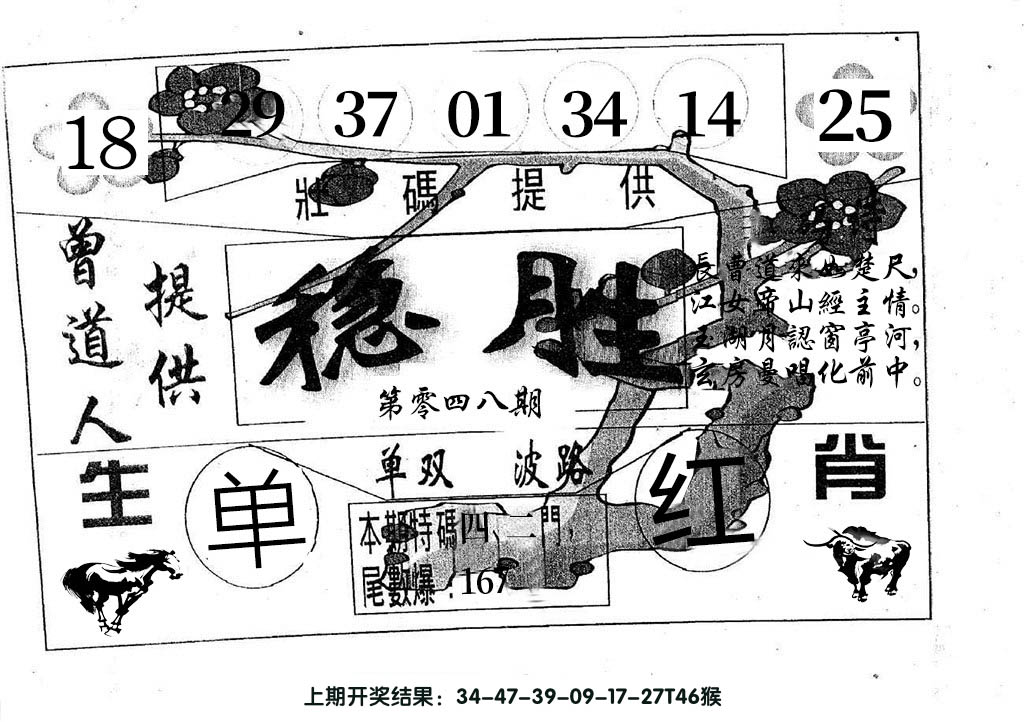 18 29 37 01 34 14 25
壯碼提供
曾道人
提供
稳胜
第零四八期
長曹道求如楚尺,
江女帝山經主情。
玉湖月認窗亭河,
玄房曼唱化前中。
单双 波路
生肖
单
红
本期特碼四、二門,
尾數爆：167
上期开奖结果：34-47-39-09-17-27T46猴